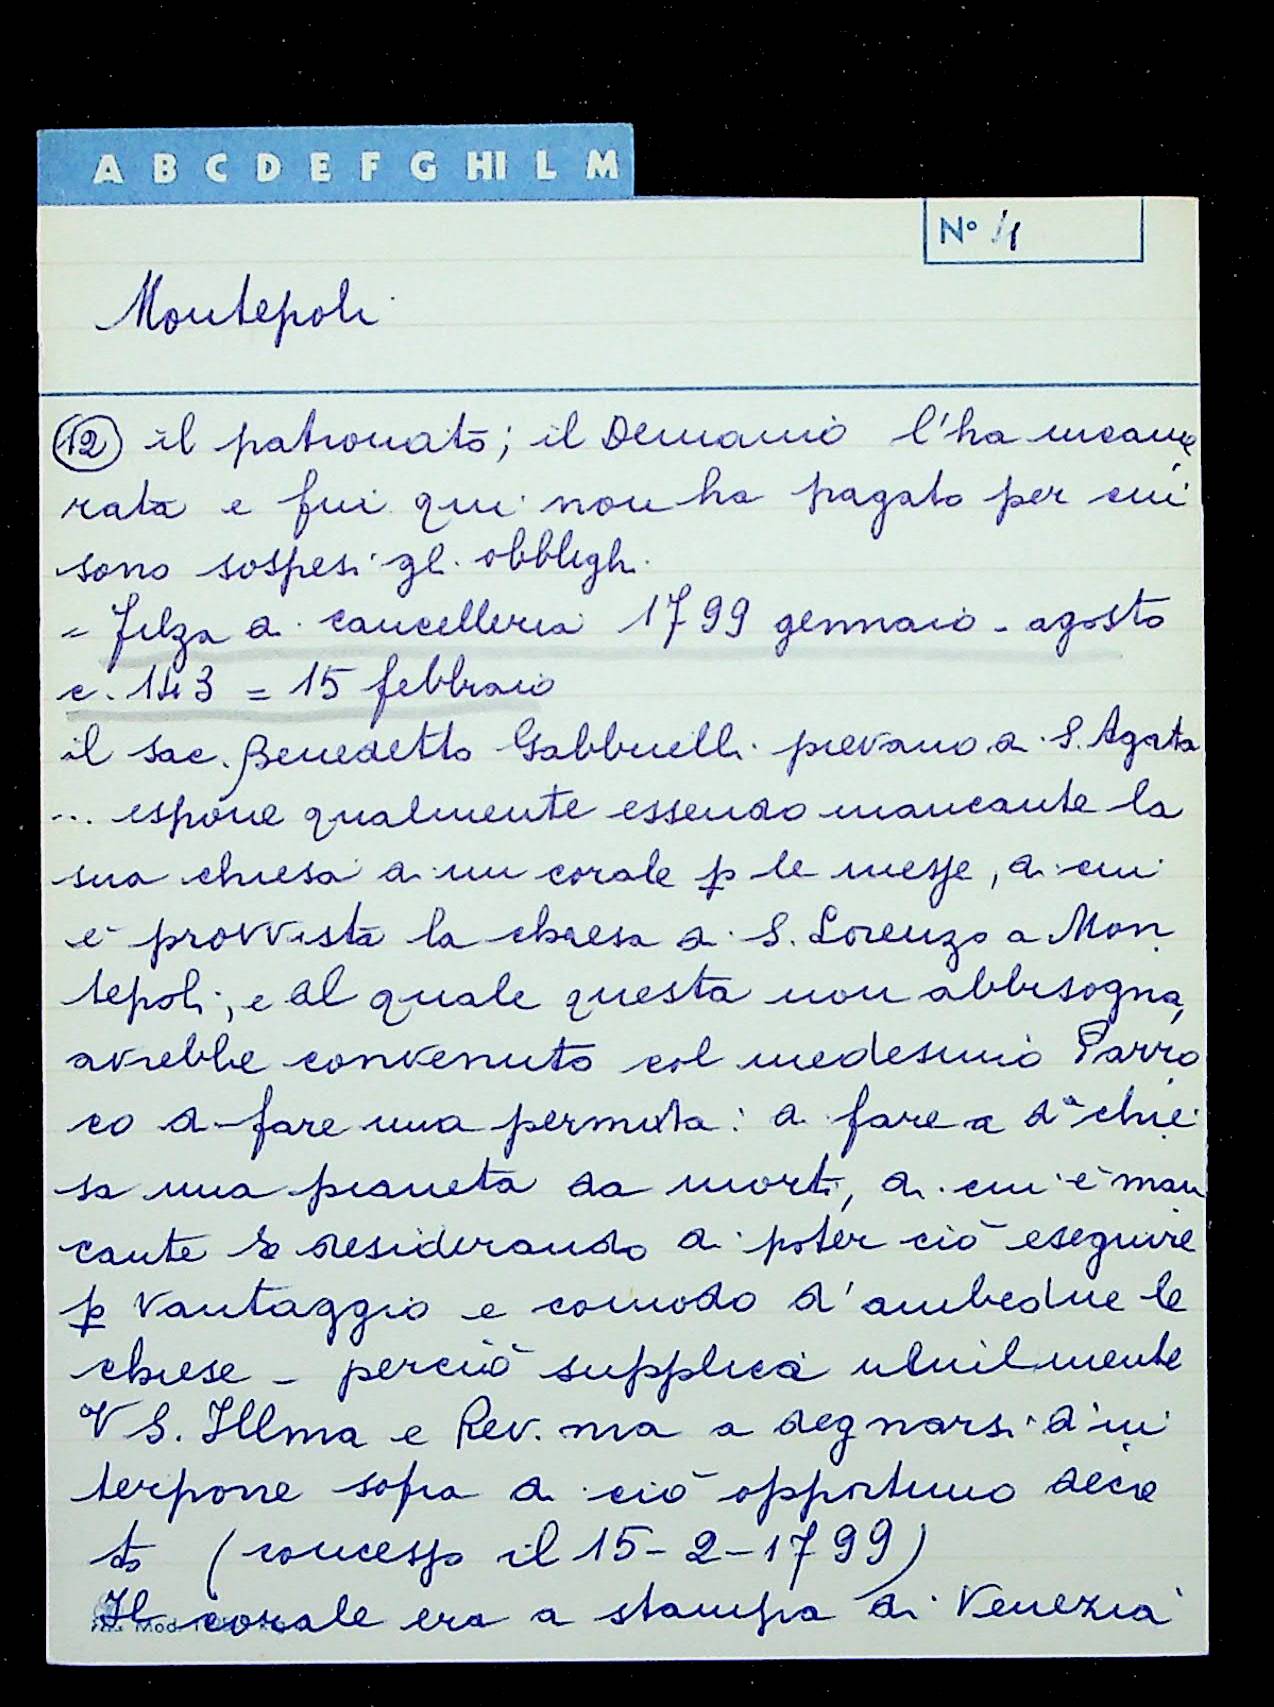 A B C D E F G HI L M
Nº 4
Montepoli
12 il patronato; il Demanio l'ha incame
rata e fin qui non ha pagato per cui
sono sospesi gli obblighi.
= Filza di cancelleria 1799 gennaio - agosto
c. 143 = 15 febbraio
il sac. Benedetto Gabbrielli pievano di S. Agata
... espone qualmente essendo mancante la
sua chiesa di un corale p le messe, di cui
è provvista la chiesa di S. Lorenzo a Mon
tepoli, e al quale questa non abbisogna,
avrebbe convenuto col medesimo Parro
co di fare una permuta: di fare a dª chie
sa una pianeta da morti, di cui è man
cante e desiderando di poter ciò eseguire
p vantaggio e comodo d'ambedue le
chiese - perciò supplica umilmente
V S. Illma e Rev.ma a degnarsi d'in
terporre sopra di ciò opportuno decre
to (concesso il 15-2-1799)
Il corale era a stampa di Venezia